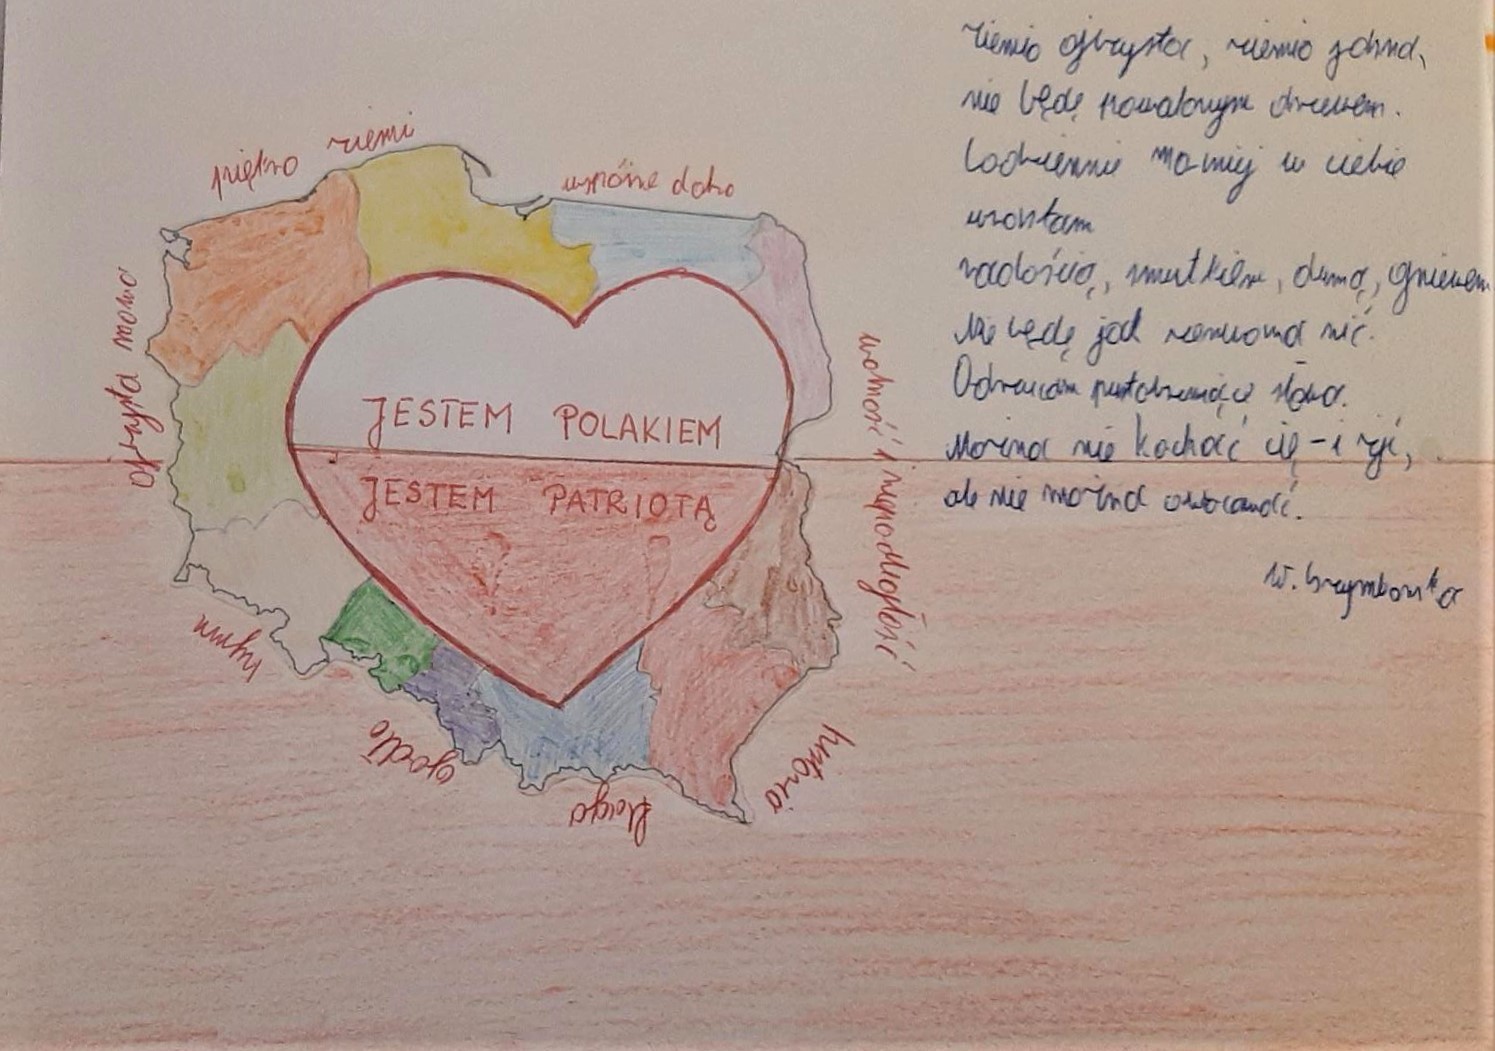 piękno ziemi
wspólne dobro
ojczysta mowa
wolność i niepodległość
JESTEM POLAKIEM
JESTEM PATRIOTĄ
hymn
godło
flaga
historia
Ziemio ojczysta, ziemio jasna,
nie będę powalonym drzewem.
Codziennie mocniej w ciebie
wrastam
radością, smutkiem, dumą, gniewem.
Nie będę jak zerwana nić.
Odrzucam pustobrzmiące słowa.
Można nie kochać cię – i żyć,
ale nie można owocować.
W. Szymborska